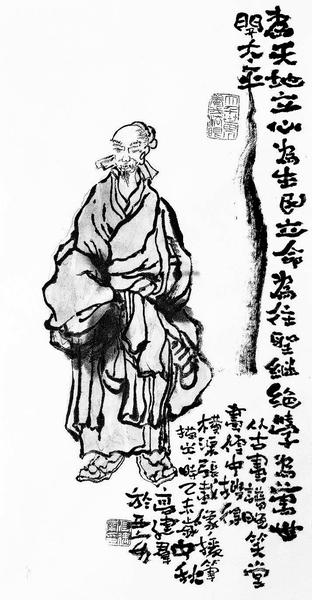 為天地立心為生民立命為往聖继絶學為萬世
開太平
从古書譜晚笑堂
畫傳中搜得
橫渠張載像援筆
描出時乙未歲中秋